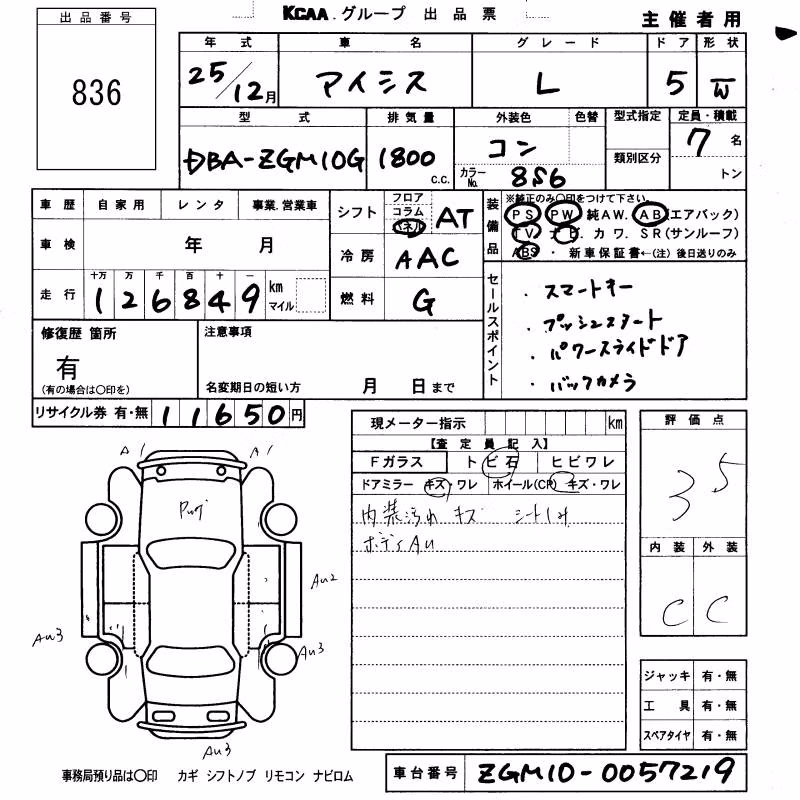 出品番号
836
KCAA.グループ 出品票
主催者用
年式 車名 グレード ドア 形状
25/12月 アイシス L 5 W
型式 排気量 外装色 色替 型式指定 定員・積載
DBA-ZGM10G 1800 c.c. コン 類別区分 7名
カラーNo. 8S6 トン
車歴 自家用 レンタ 事業.営業車
車検 年 月
走行 十万 万 千 百 十 一
126849 km マイル
シフト フロア コラム パネル AT
冷房 AAC
燃料 G
装備品
※純正のみ〇印をつけて下さい。
PS PW 純AW. AB(エアバック)
TV ナビ. カワ. SR(サンルーフ)
ABS ・ 新車保証書←(注)後日送りのみ
セールスポイント
・スマートキー
・プッシュスタート
・パワースライドドア
・バックカメラ
修復歴 箇所
有
(有の場合は〇印を)
注意事項
名変期日の短い方 月 日まで
リサイクル券 有・無 11650円
現メーター指示 km
【査定員記入】
Fガラス トビ石 ヒビワレ
ドアミラー キズ・ワレ ホイール(CP) キズ・ワレ
内装汚れ キズ シート
ボディAU
評価点
3.5
内装 外装
C C
ジャッキ 有・無
工具 有・無
スペアタイヤ 有・無
A1 A1
AU2
AU3 AU3
AU3
事務局預り品は〇印 カギ シフトノブ リモコン ナビロム
車台番号 ZGM10-0057219